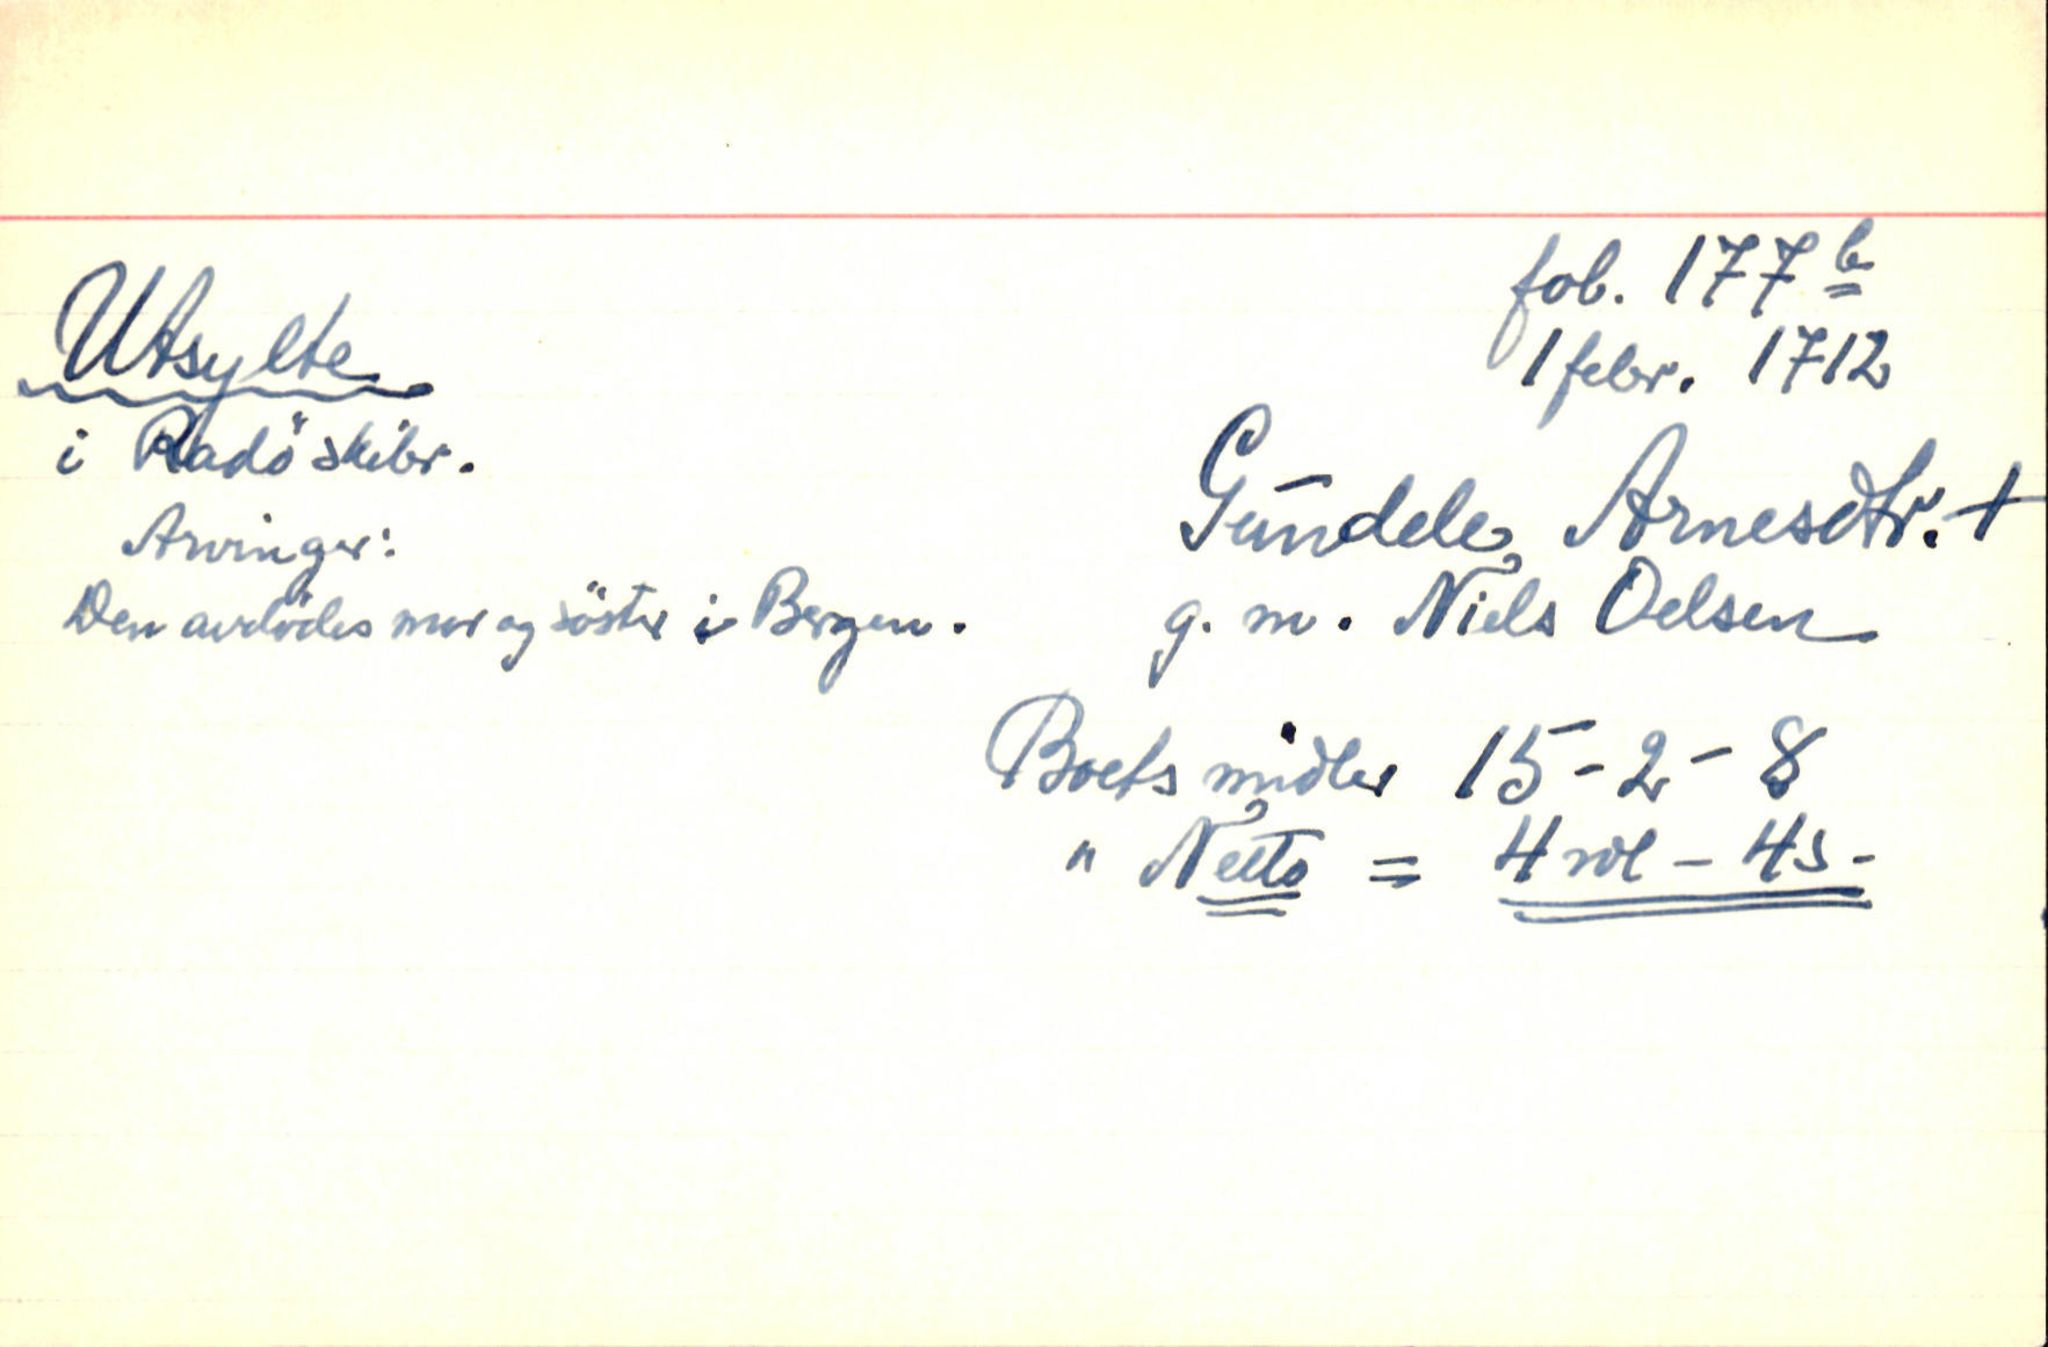 fol. 177 b
1 febr. 1712
Utsylte
i Radö skibr.
Arvinger:
Den avdödes mor og söster i Bergen.
Gundele Arnesdtr. +
g. m. Niels Oelsen
Boets midler 15 - 2 - 8
" Netto = 4 rdl - 4 s -